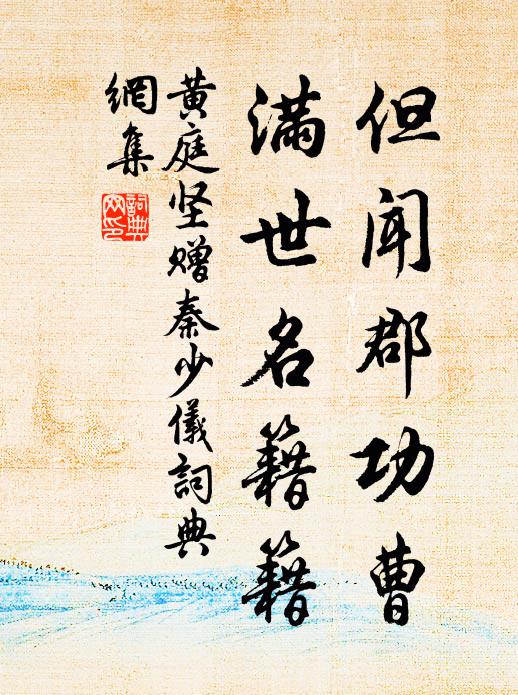 但闻郡功曹
满世名籍籍
黄庭坚赠秦少仪词典
网集
词典网印